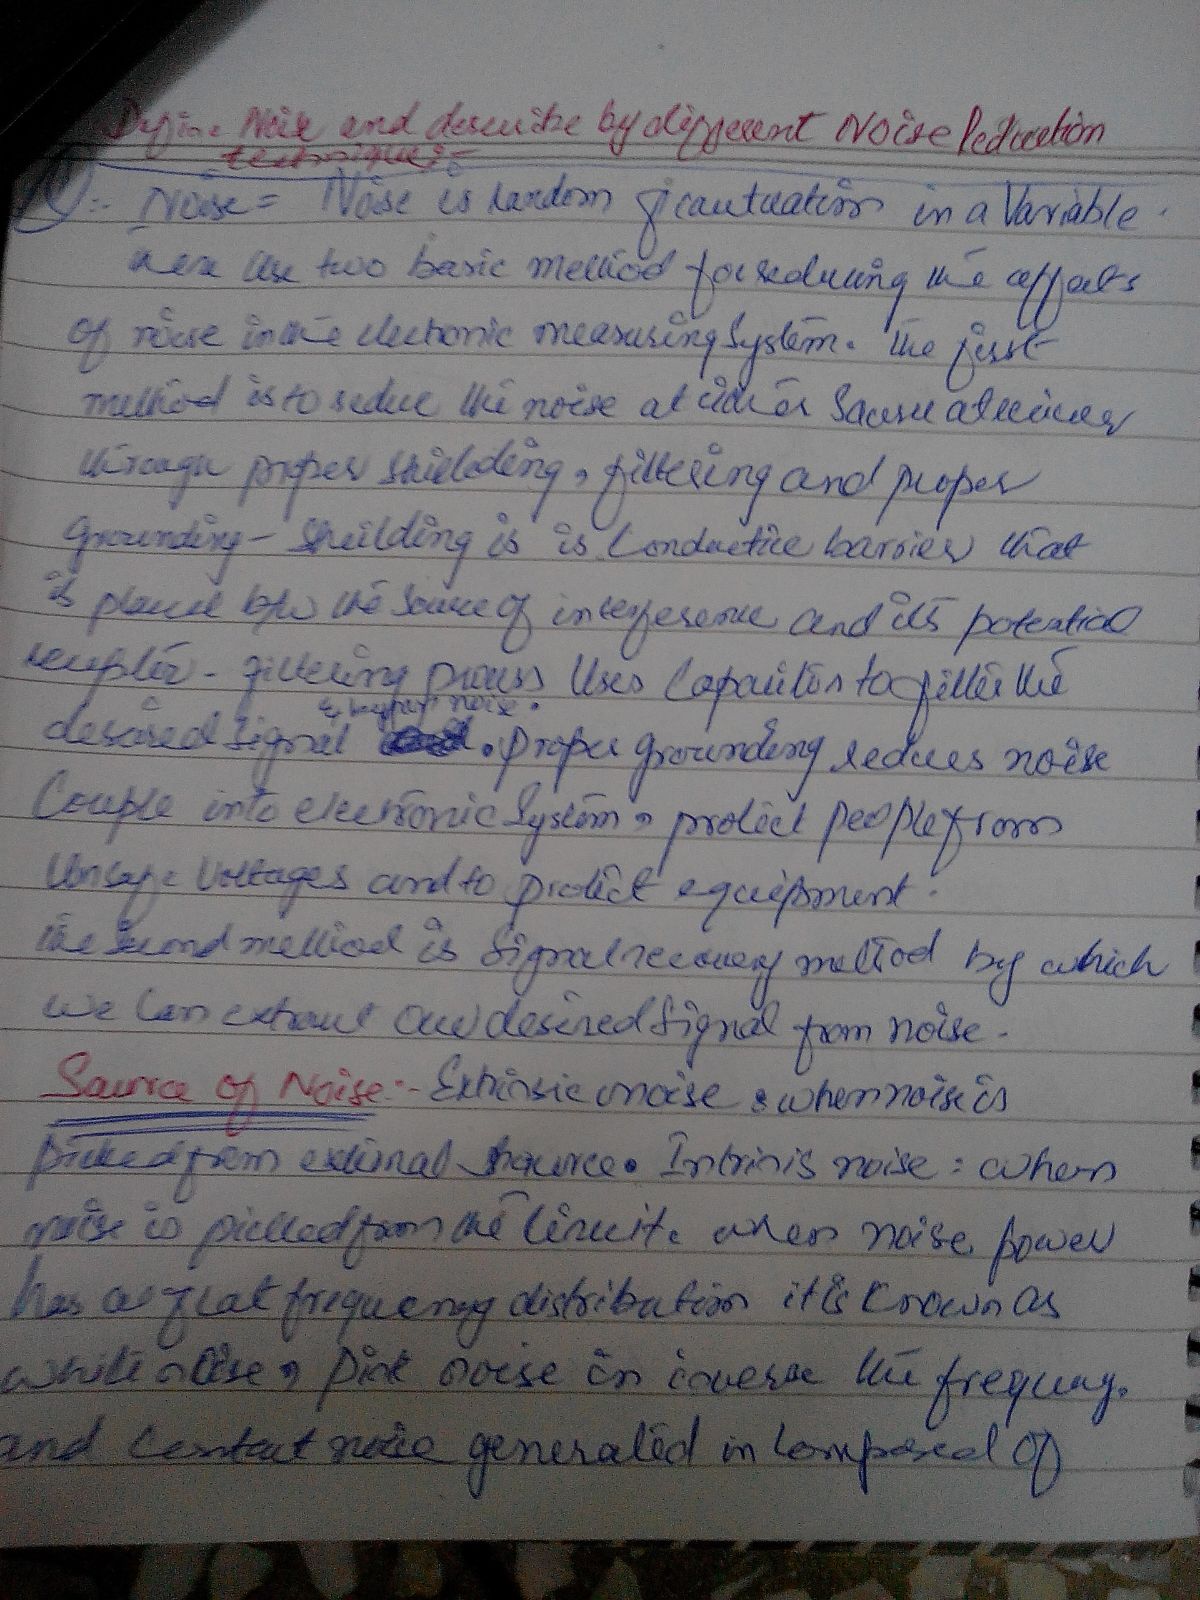 Define Noise and describe by different Noise Reduction
technique:-
:- Noise = Noise is random in a Variable.
are two basic method for reducing the effects
of noise in the electronic measuring System. the first
method is to reduce the noise at
through proper shielding, filtering and proper
grounding - Sheilding is is Conductice barrier that
is placed b/w the Source of interference and its potential
- filtering process Uses Capacitor to filter the
& bypass noise.
desired Signal . Proper grounding reduces noise
Couple into electronic System, protect people from
Unsafe Voltages and to protect equipment.
the second method is Signal recovery method by which
we can extract our desired Signal from noise.
Source of Noise:- Extrinsic noise : when noise is
picked from external source. Intrinis noise : when
noise is picked from the Circuit. when noise power
has a flat frequency distribution it is known as
white noise, Pink noise in inverse the frequency.
and Contact noise generated in Composed of